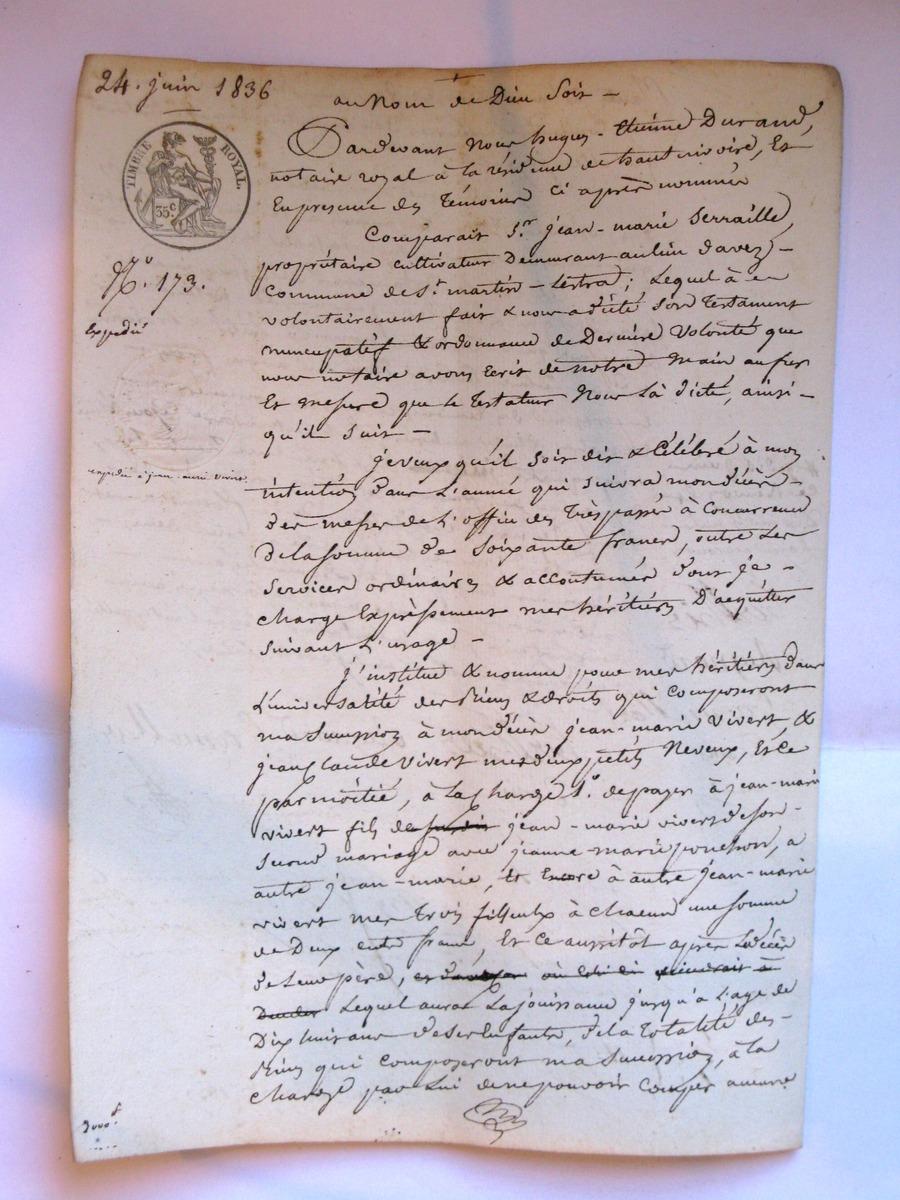 24. juin 1836
au Nom de Dieu Soit -
Pardevant Nous hugues - Etienne Durand,
notaire royal à la résidence de hauterivoire, Et
En presence des Témoins Ci après nommés
Comparait S.r jean - marie Serraille,
propriétaire cultivateur Demeurant au lieu d'avez -
Commune de S.t martin - Lestra ; Lequel à eu
volontairement fait & nous a dicté Son Testament
nuncupatif & ordonnance de Dernière Volonté que
nous notaire avons Ecrit de notre Main au fur
Et mesure que le Testateur Nous l'à dicté, ainsi -
qu'il Suit -
je veux qu'il Soit dit & Célébré à mon
intention dans L'année qui Suivra mon décès -
des messes de L'office des Trépassés à Concurrence
De la Somme de Soixante francs, outre Les
Services ordinaires & accoutumés dont je -
charge Expressement mes héritiers D'acquitter
Suivant L'usage -
j'institue & nomme pour mes héritiers dans
L'universalité des Biens & droits qui Composeront
ma Succession à mon décès jean - marie Vivert, &
jean Claude Vivert mes deux petits Neveux, Et Ce
par moitié, à La Charge 1.o de payer à jean - marie
vivert fils de jean - marie vivert de Son -
Second mariage avec jeanne - marie ponchon, a
autre jean - marie, Et Encore à autre jean - marie
vivert mes Trois filleuls à Chacun une Somme
de Deux cents francs, Et Ce aussitôt après Le décès
de Leur père,
Lequel aura La jouissance jusqu'à L'age de
Dix huit ans de Ses Enfants, de la Totalité des -
Biens qui Composeront ma Succession, à la
charge par Lui de ne pouvoir Couper aucuns
TIMBRE ROYAL.
35.c
N.o 173.
Expédié
expédié à jean - marie Vivert
3000.f